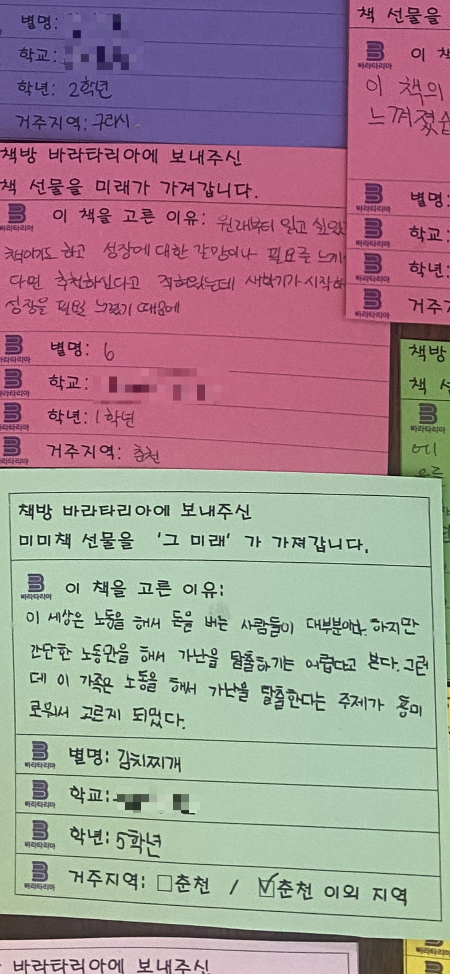 별명:
학교:
학년: 2학년
거주지역: 구리시
책 선물을
이 책
이 책의
느껴졌습
별명:
학교:
학년:
거주지
책방 바라타리아에 보내주신
책 선물을 미래가 가져갑니다.
바라타리아 이 책을 고른 이유: 원래부터 읽고 싶었
책이기도 하고 성장에 대한 갈망이나 필요를 느끼
다면 추천하신다고 적혀있는데 새학기가 시작하
성장을 필요로 느꼈기 때문에
바라타리아 별명: 6
바라타리아 학교:
바라타리아 학년: 1학년
바라타리아 거주지역: 춘천
책방
책 선
바라타리아
에
책방 바라타리아에 보내주신
미미책 선물을 '그 미래' 가 가져갑니다.
바라타리아 이 책을 고른 이유:
이 세상은 노동을 해서 돈을 버는 사람들이 대부분이다. 하지만
간단한 노동만을 해서 가난을 탈출하기는 어렵다고 본다. 그런
데 이 가족은 노동을 해서 가난을 탈출한다는 주제가 흥미
로워서 고르게 되었다.
바라타리아 별명: 김치찌개
바라타리아 학교:
바라타리아 학년: 5학년
바라타리아 거주지역: □춘천 / ☑춘천 이외 지역
바라타리아에 보내주신